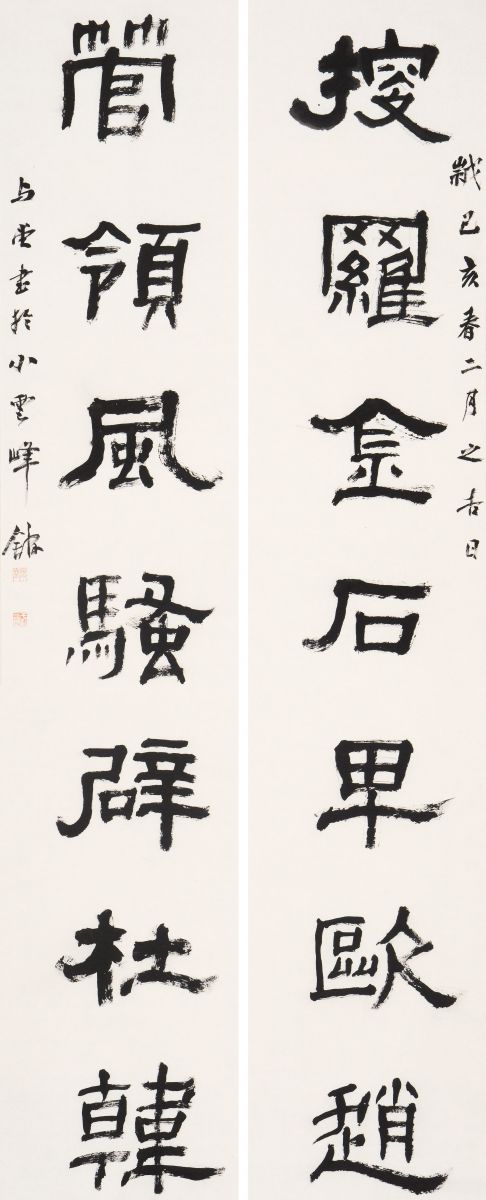 歲己亥春二月之吉日
搜羅金石卑歐趙
管領風騷辟杜韓
書於小雲峰館